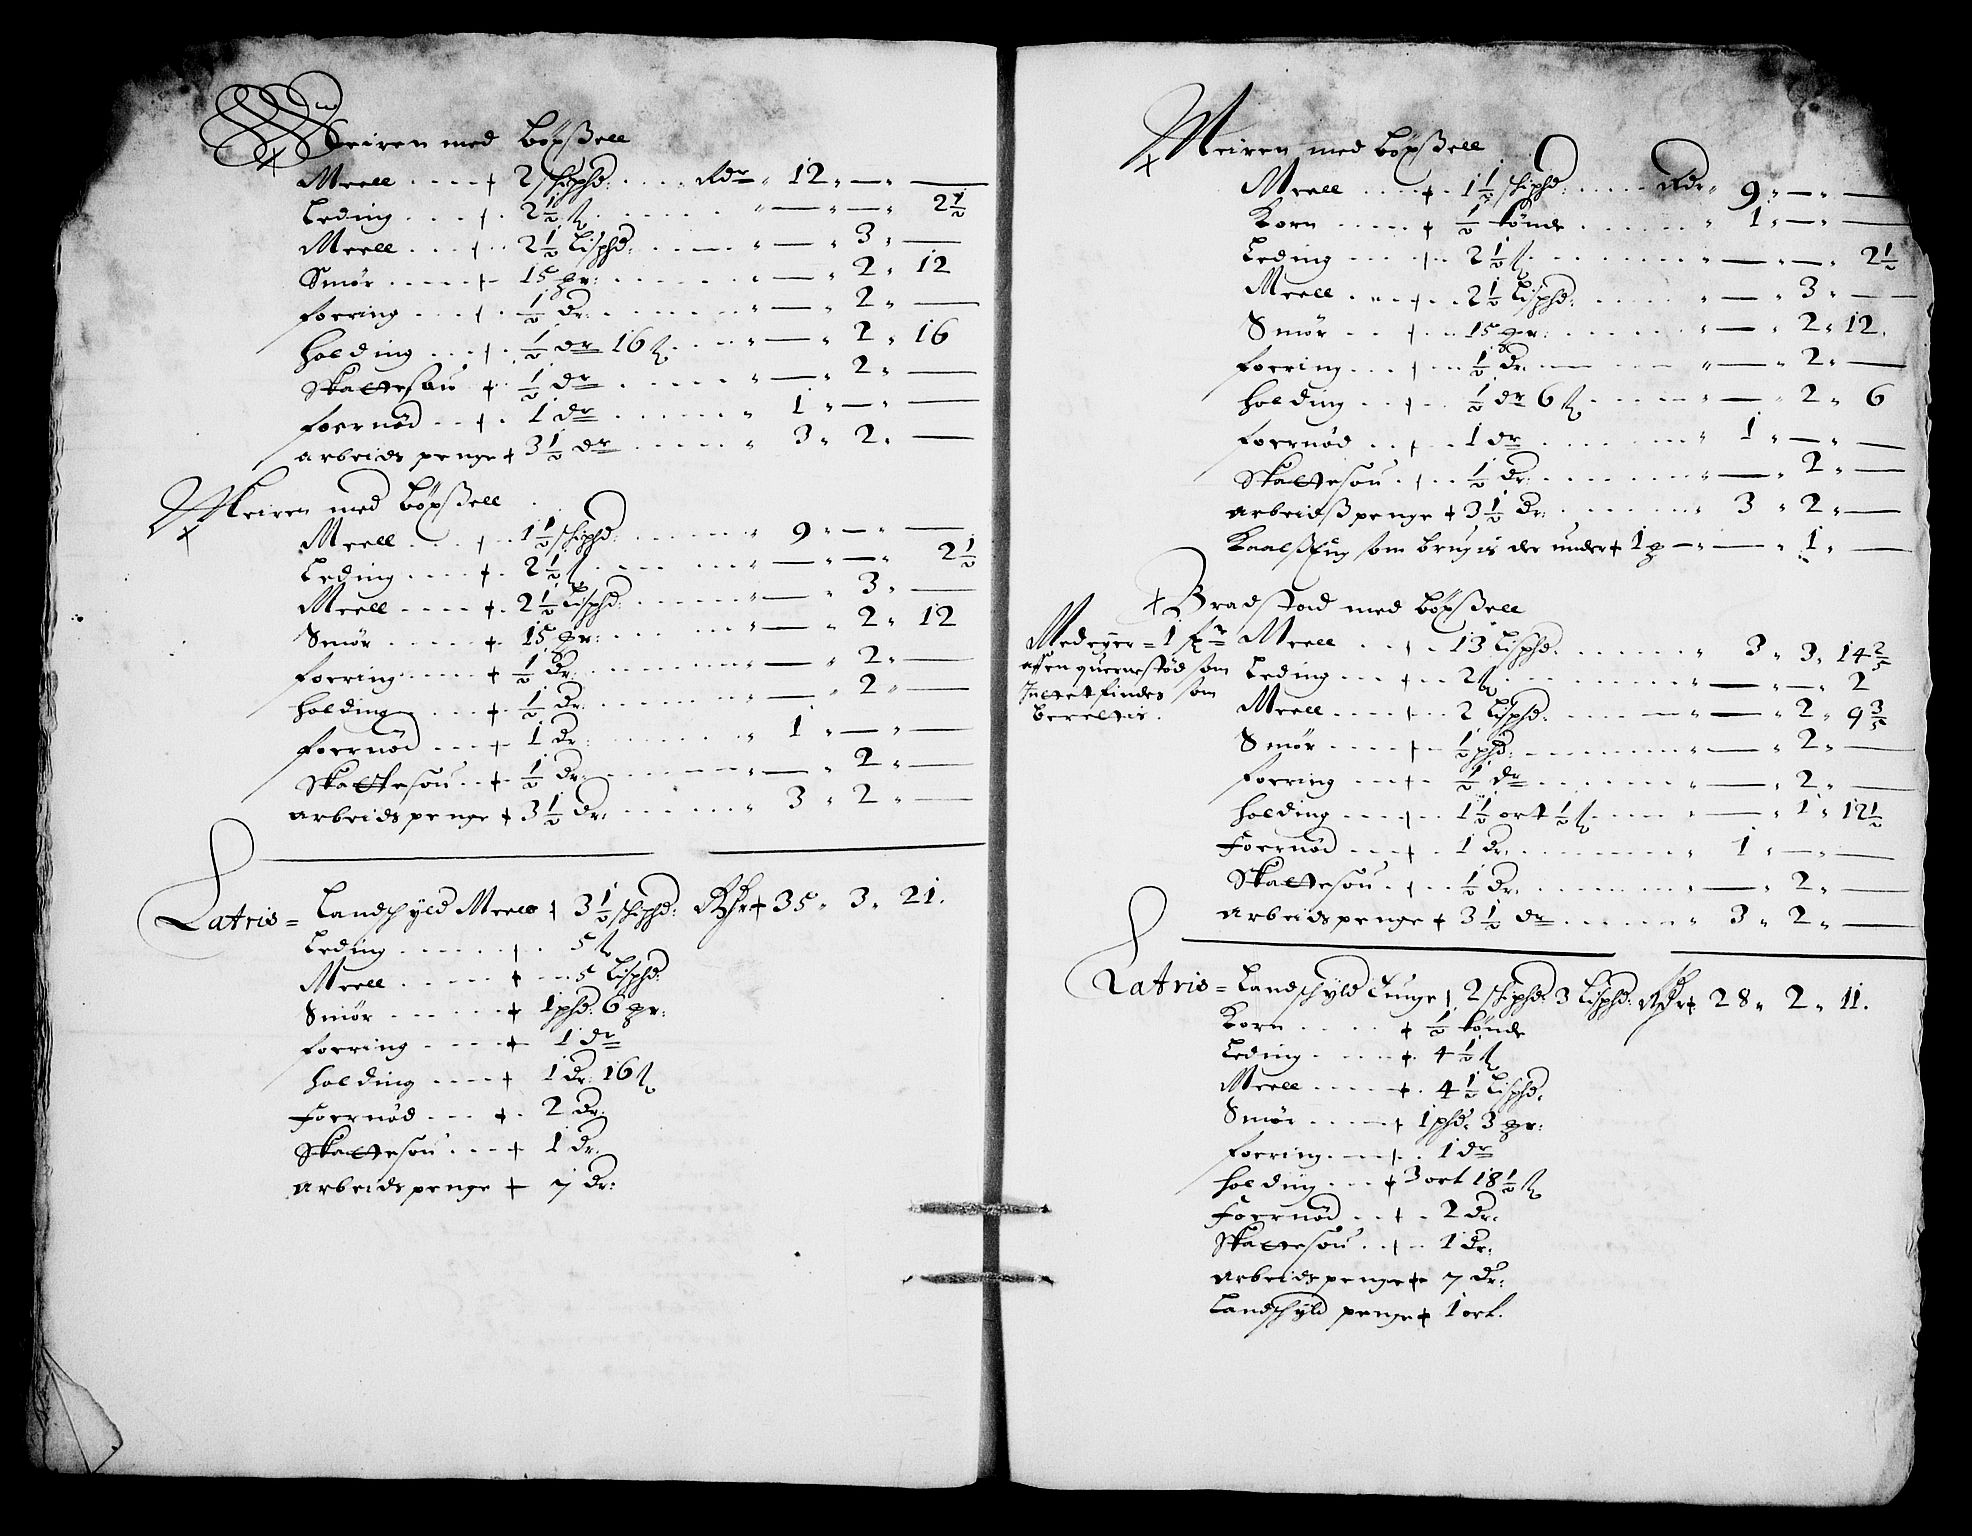 Meiren med böxßell
Meell + 2 skiphd: Rdr 12 " — " —
Leding + 2½ ß " — " — " 2½
Meell + 2½ Lisphd: " — " 3 " —
Smör + 15 pr: " — " 2 " 12
foering + ½ dr: " — " 2 " —
holding + ½ dr 16 ß " — " 2 " 16
Skattesou + ½ dr " — " 2 " —
foernöd + 1 dr " 1 " — " —
arbeids penge + 3½ dr " 3 " 2 " —
Meiren med böxßell
Meell + 1½ skiphd: " 9 " — " —
Leding + 2½ ß " — " — " 2½
Meell + 2½ Lisphd: " — " 3 " —
Smör + 15 pr: " — " 2 " 12
foering + ½ dr: " — " 2 " —
holding + ½ dr: " — " 2 " —
foernöd + 1 dr: " 1 " — " —
Skattesou + ½ dr: " — " 2 " —
arbeidspenge + 3½ dr: " 3 " 2 " —
Latris = Landschyld Meele + 3½ skiphd: Rdr + 35 " 3 " 21.
Leding + 5 ß
Meell + 5 Lisphd:
Smör + 1 phd: 6 pr:
foering + 1 dr
holding + 1 dr: 16 ß
Foernöd + 2 dr:
Skattesou + 1 dr:
arbeidspenge + 7 dr:
Meiren med böxßell
Meell + 1½ skiphd: Rdr " 9 " — " —
Korn + ½ tönde " 1 " — " —
Leding + 2½ ß " — " — " 2½
Meell + 2½ Lisphd: " — " 3 " —
Smör + 15 pr: " — " 2 " 12.
foering + ½ dr: " — " 2 " —
holding + ½ dr 6 ß " — " 2 " 6
foernöd + 1 dr " 1 " — " —
Skattesou + ½ dr: " — " 2 " —
arbeidßpenge + 3½ dr: " 3 " 2 " —
som brugis der under + 1 — " — " 1 " —
+ Bradstad med böxßell
Medeyer = 1
aff en quernestöd som
Intet findes som
berettis.
Meell + 13 Lisphd. " 3 " 3 " 14⅖
Leding + 2 ß " — " — " 2
Meell + 2 Lisphd: " — " 2 " 9⅗
Smör + ½ phd: " — " 2 " —
foering + ½ dr " — " 2 " —
holding + 1½ ort ½ ß " — " 1 " 12½
Foernöd + 1 dr: " 1 " — " —
Skattesou + ½ dr: " — " 2 " —
arbeidspenge + 3½ dr " 3 " 2 " —
Latris = Landschyld tunge + 2 skiphd: 3 Lisphd: Rdr + 28 " 2 " 11.
Korn + ½ tönde
Leding + 4½ ß
Meell + 4½ Lisphd.
Smör + 1 phd: 3 pr:
foering + 1 dr
holding + 3 ort 18½ ß
Foernöd + 2 dr.
Skattesou + 1 dr:
arbeidspenge + 7 dr:
Landschyld penge + 1 ort.